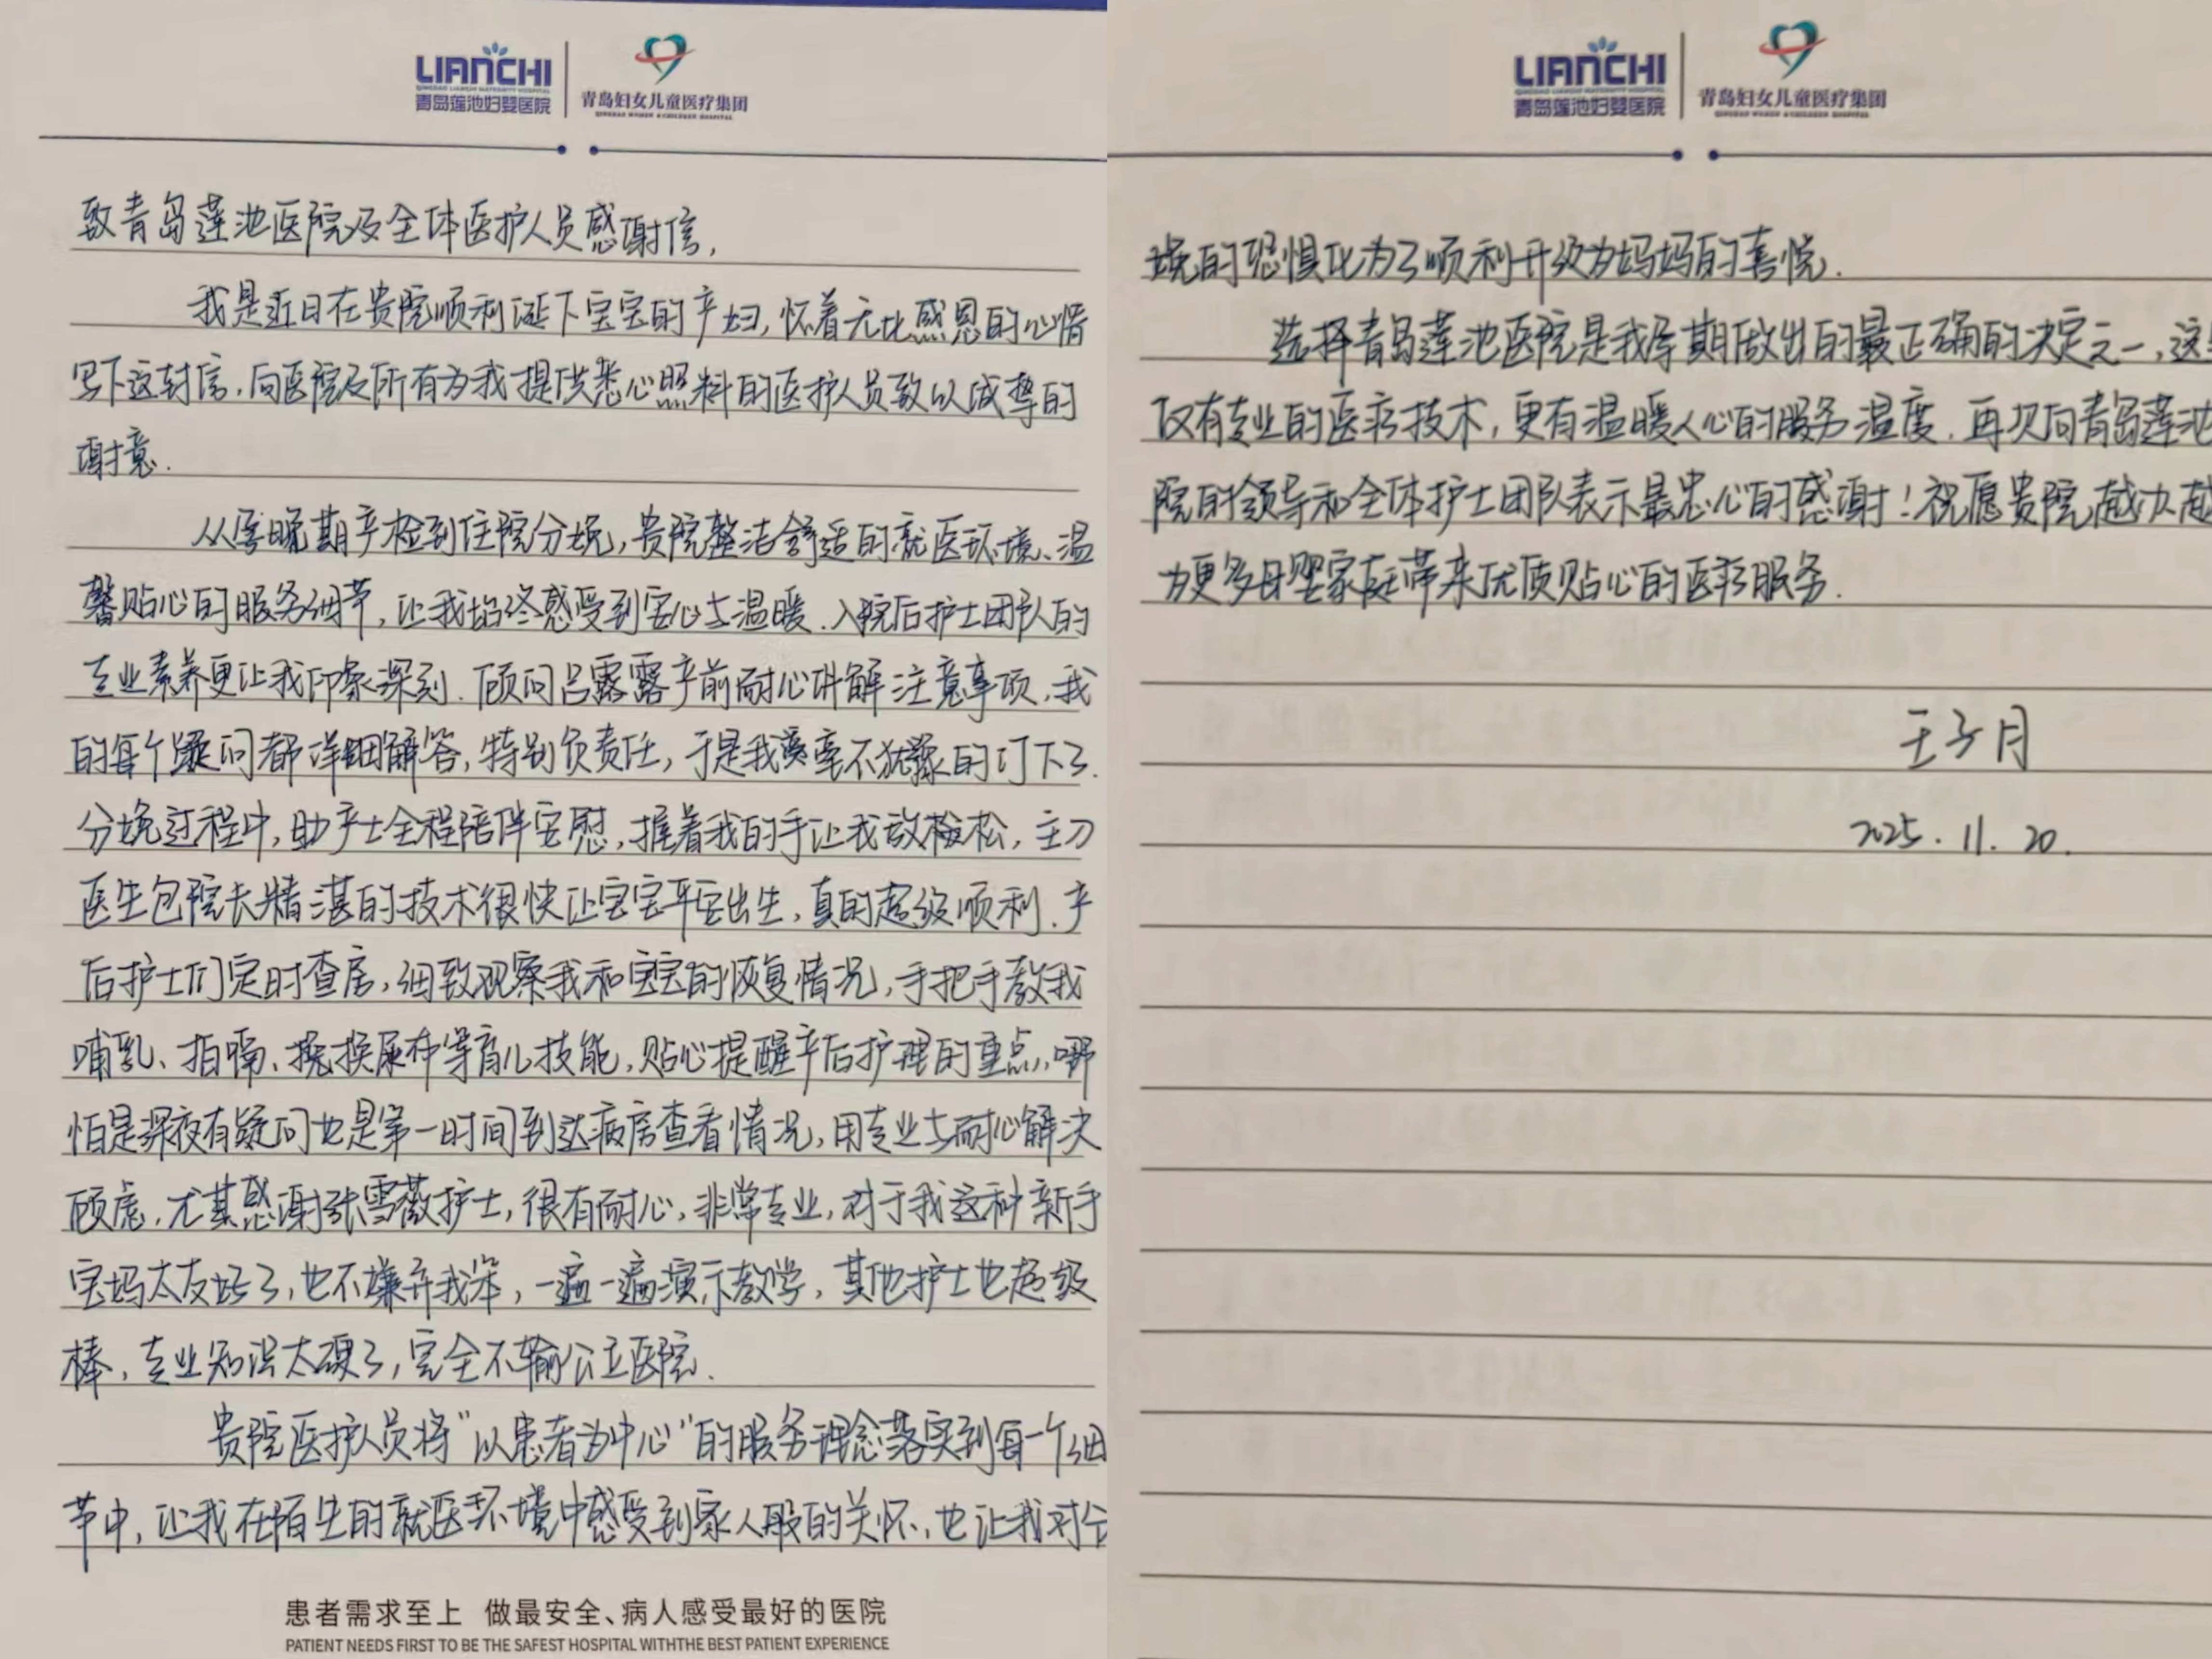 LIANCHI
QINGDAO LIANCHI MATERNITY HOSPITAL
青岛莲池妇婴医院
青岛妇女儿童医疗集团
QINGDAO WOMEN & CHILDREN HOSPITAL
致青岛莲池医院及全体医护人员感谢信,
我是近日在贵院顺利诞下宝宝的产妇,怀着无比感恩的心情
写下这封信,向医院及所有为我提供悉心照料的医护人员致以诚挚的
谢意.
从孕晚期产检到住院分娩,贵院整洁舒适的就医环境、温
馨贴心的服务细节,让我始终感受到安心与温暖.入院后护士团队的
专业素养更让我印象深刻.顾问吕露露产前耐心讲解注意事项,我
的每个疑问都详细解答,特别负责任,于是我毫不犹豫的订下了.
分娩过程中,助产士全程陪伴安慰,握着我的手让我放松,主刀
医生包院长精湛的技术很快让宝宝平安出生,真的超级顺利.产
后护士们定时查房,细致观察我和宝宝的恢复情况,手把手教我
哺乳、拍嗝、换尿布等育儿技能,贴心提醒产后护理的重点,哪
怕是深夜有疑问也是第一时间到达病房查看情况,用专业与耐心解决
顾虑,尤其感谢张雪薇护士,很有耐心,非常专业,对于我这种新手
宝妈太友好了,也不嫌弃我笨,一遍一遍演示教学,其他护士也超级
棒,专业知识太硬了,完全不输公立医院.
贵院医护人员将“以患者为中心”的服务理念落实到每一个细
节中,让我在陌生的就医环境中感受到家人般的关怀,也让我对分
患者需求至上 做最安全、病人感受最好的医院
PATIENT NEEDS FIRST TO BE THE SAFEST HOSPITAL WITHTHE BEST PATIENT EXPERIENCE
LIANCHI
QINGDAO LIANCHI MATERNITY HOSPITAL
青岛莲池妇婴医院
青岛妇女儿童医疗集团
QINGDAO WOMEN & CHILDREN HOSPITAL
娩的恐惧化为了顺利升级为妈妈的喜悦.
选择青岛莲池医院是我孕期做出的最正确的决定之一,这
仅有专业的医疗技术,更有温暖人心的服务温度.再次向青岛莲池
院的领导和全体护士团队表示最忠心的感谢!祝愿贵院越办越
为更多母婴家庭带来优质贴心的医疗服务.
王子月
2025.11.20.